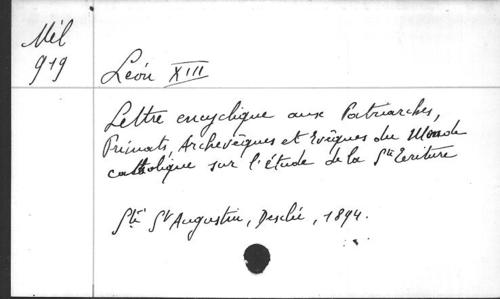 Mél
919
Léon XIII
Lettre encyclique aux Patriarches,
Primats, Archevêques et Evêques du Monde
catholique sur l'étude de la Ste Ecriture
Sté St Augustin, Desclée, 1894.